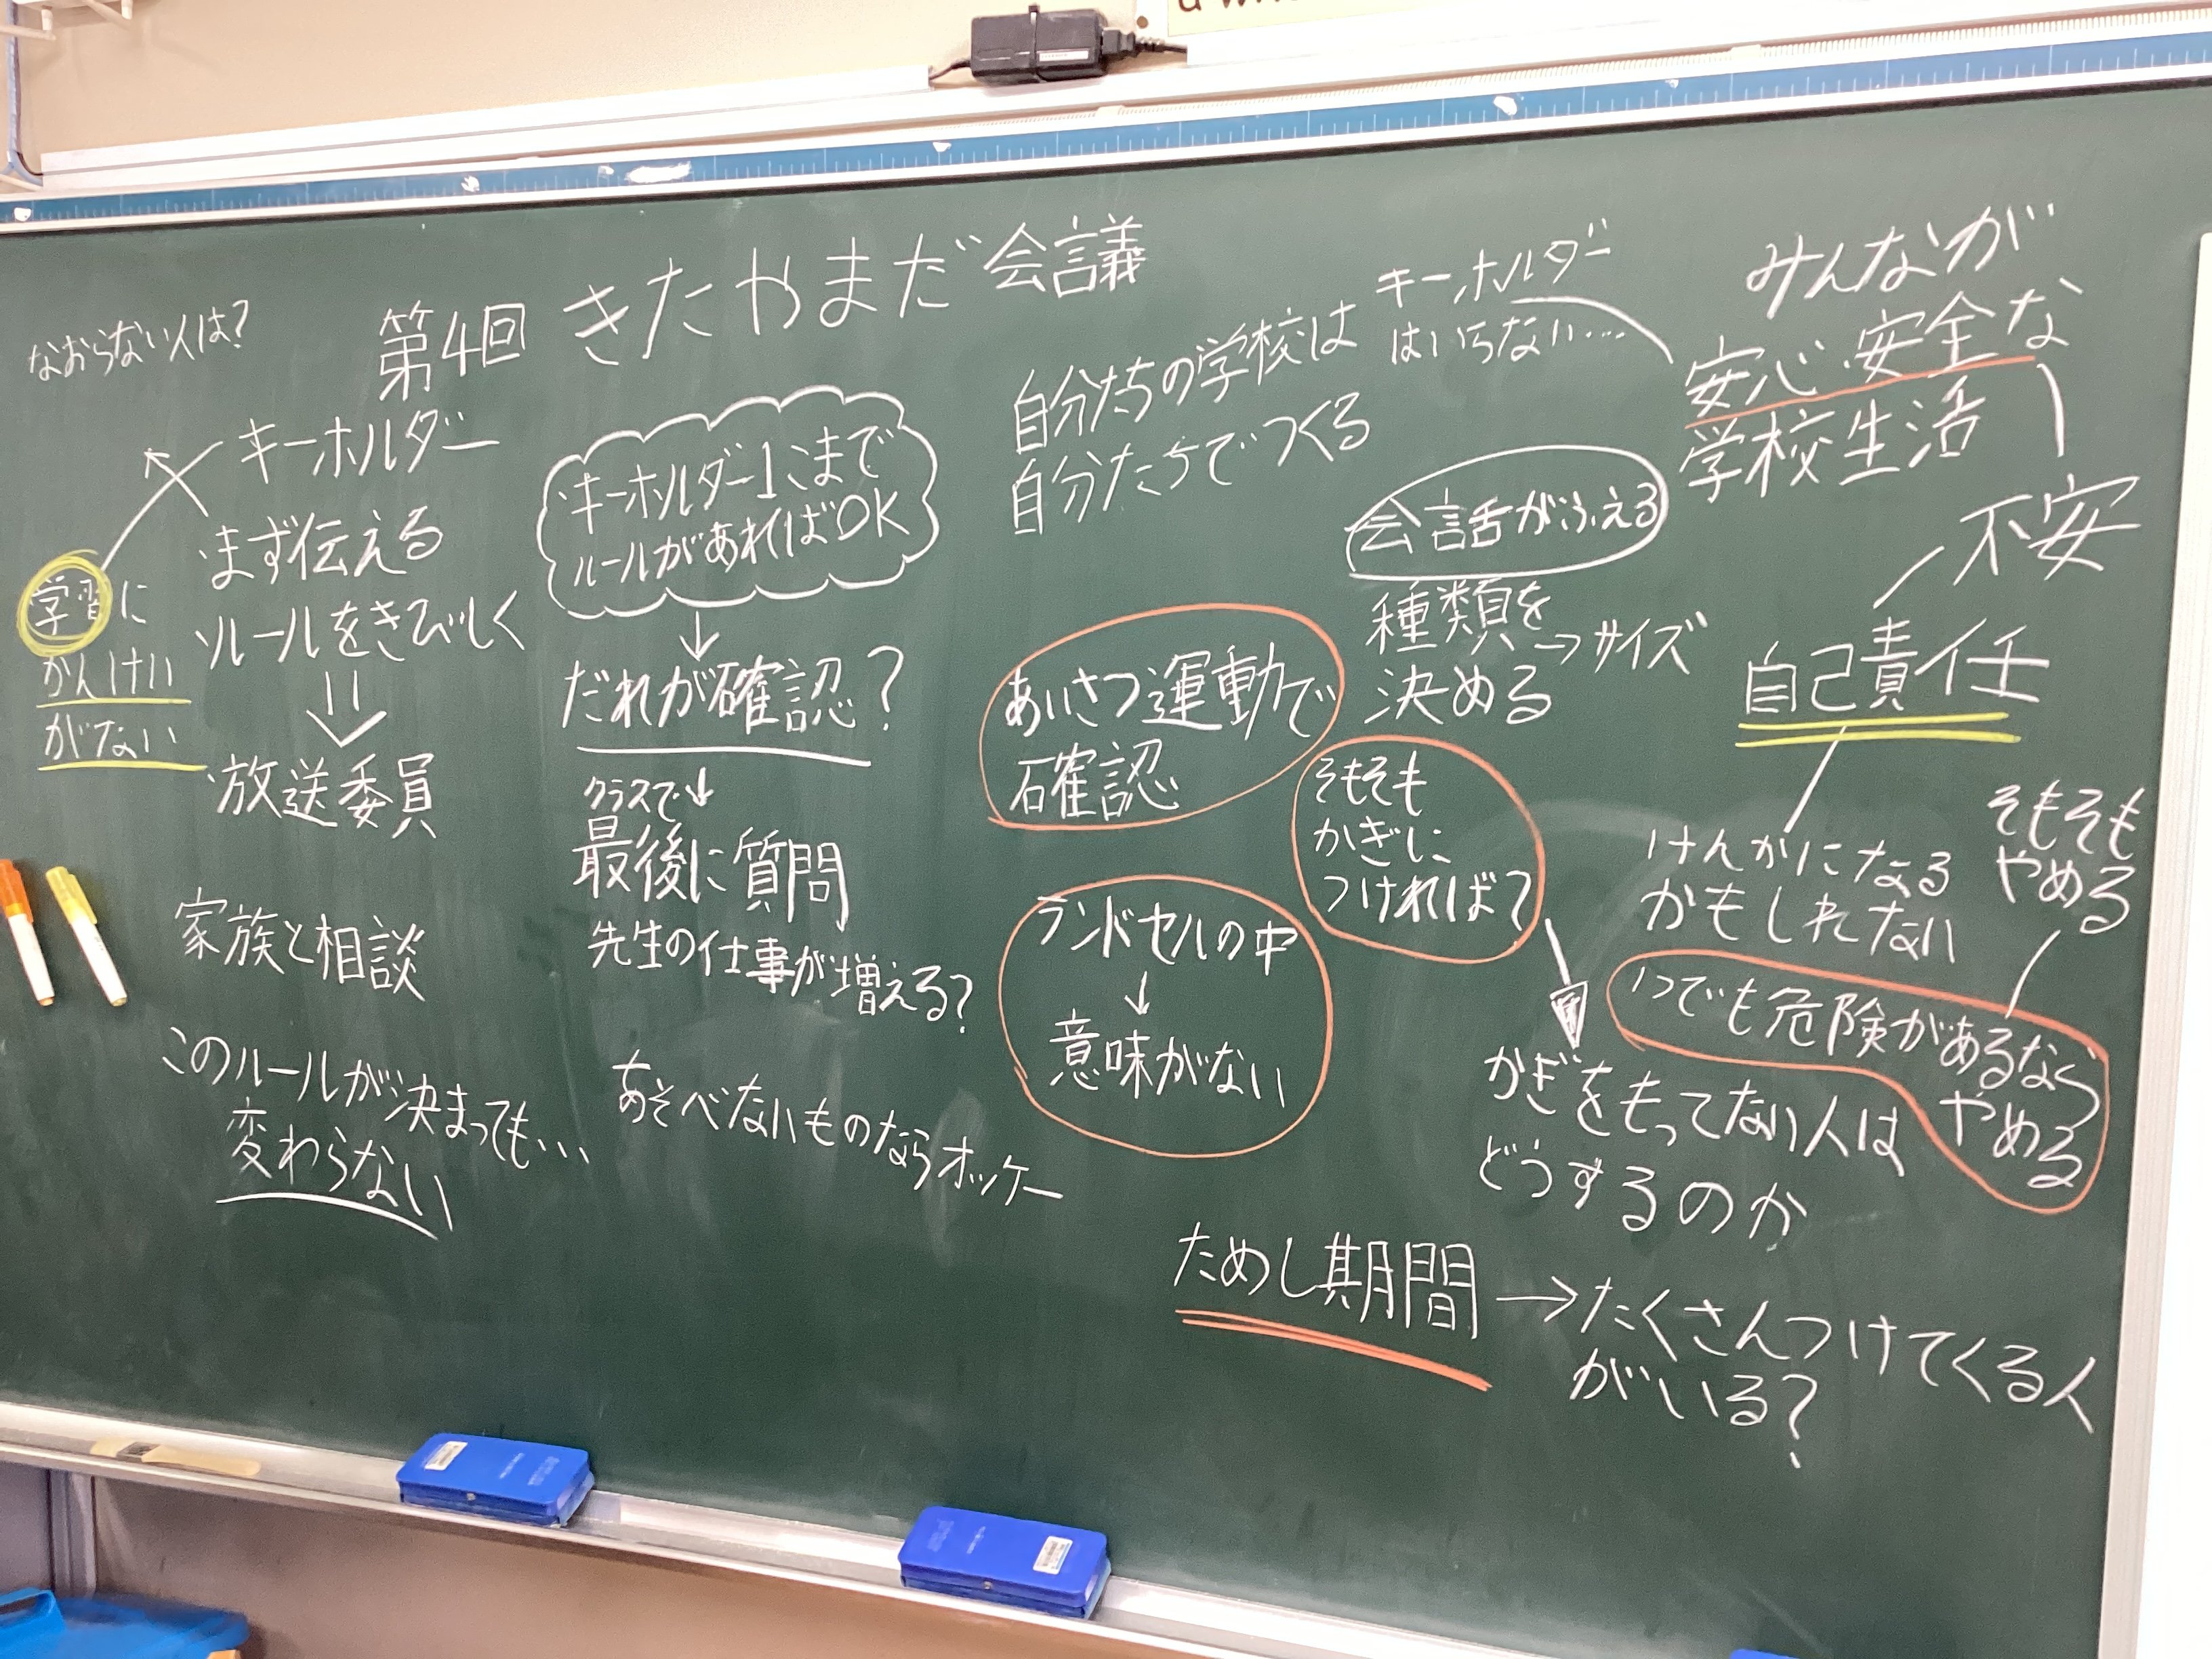 第4回 きたやまだ会議
なおらない人は?
キーホルダー
まず伝える
ルールをきびしく
学習に
かんけい
がない
放送委員
家族と相談
このルールが決まっても…
変わらない
キーホルダー1こまで
ルールがあればOK
だれが確認?
クラスで
最後に質問
先生の仕事が増える?
あそべないものならオッケー
自分たちの学校は
自分たちでつくる
キーホルダー
はいらない…
みんなが
安心・安全な
学校生活
会話がふえる
種類を
決める
→サイズ
あいさつ運動で
確認
そもそも
かぎに
つければ?
ランドセルの中
↓
意味がない
不安
自己責任
けんかになる
かもしれない
そもそも
やめる
いつでも危険があるなら
やめる
かぎをもってない人は
どうするのか
ためし期間→たくさんつけてくる人
がいる?